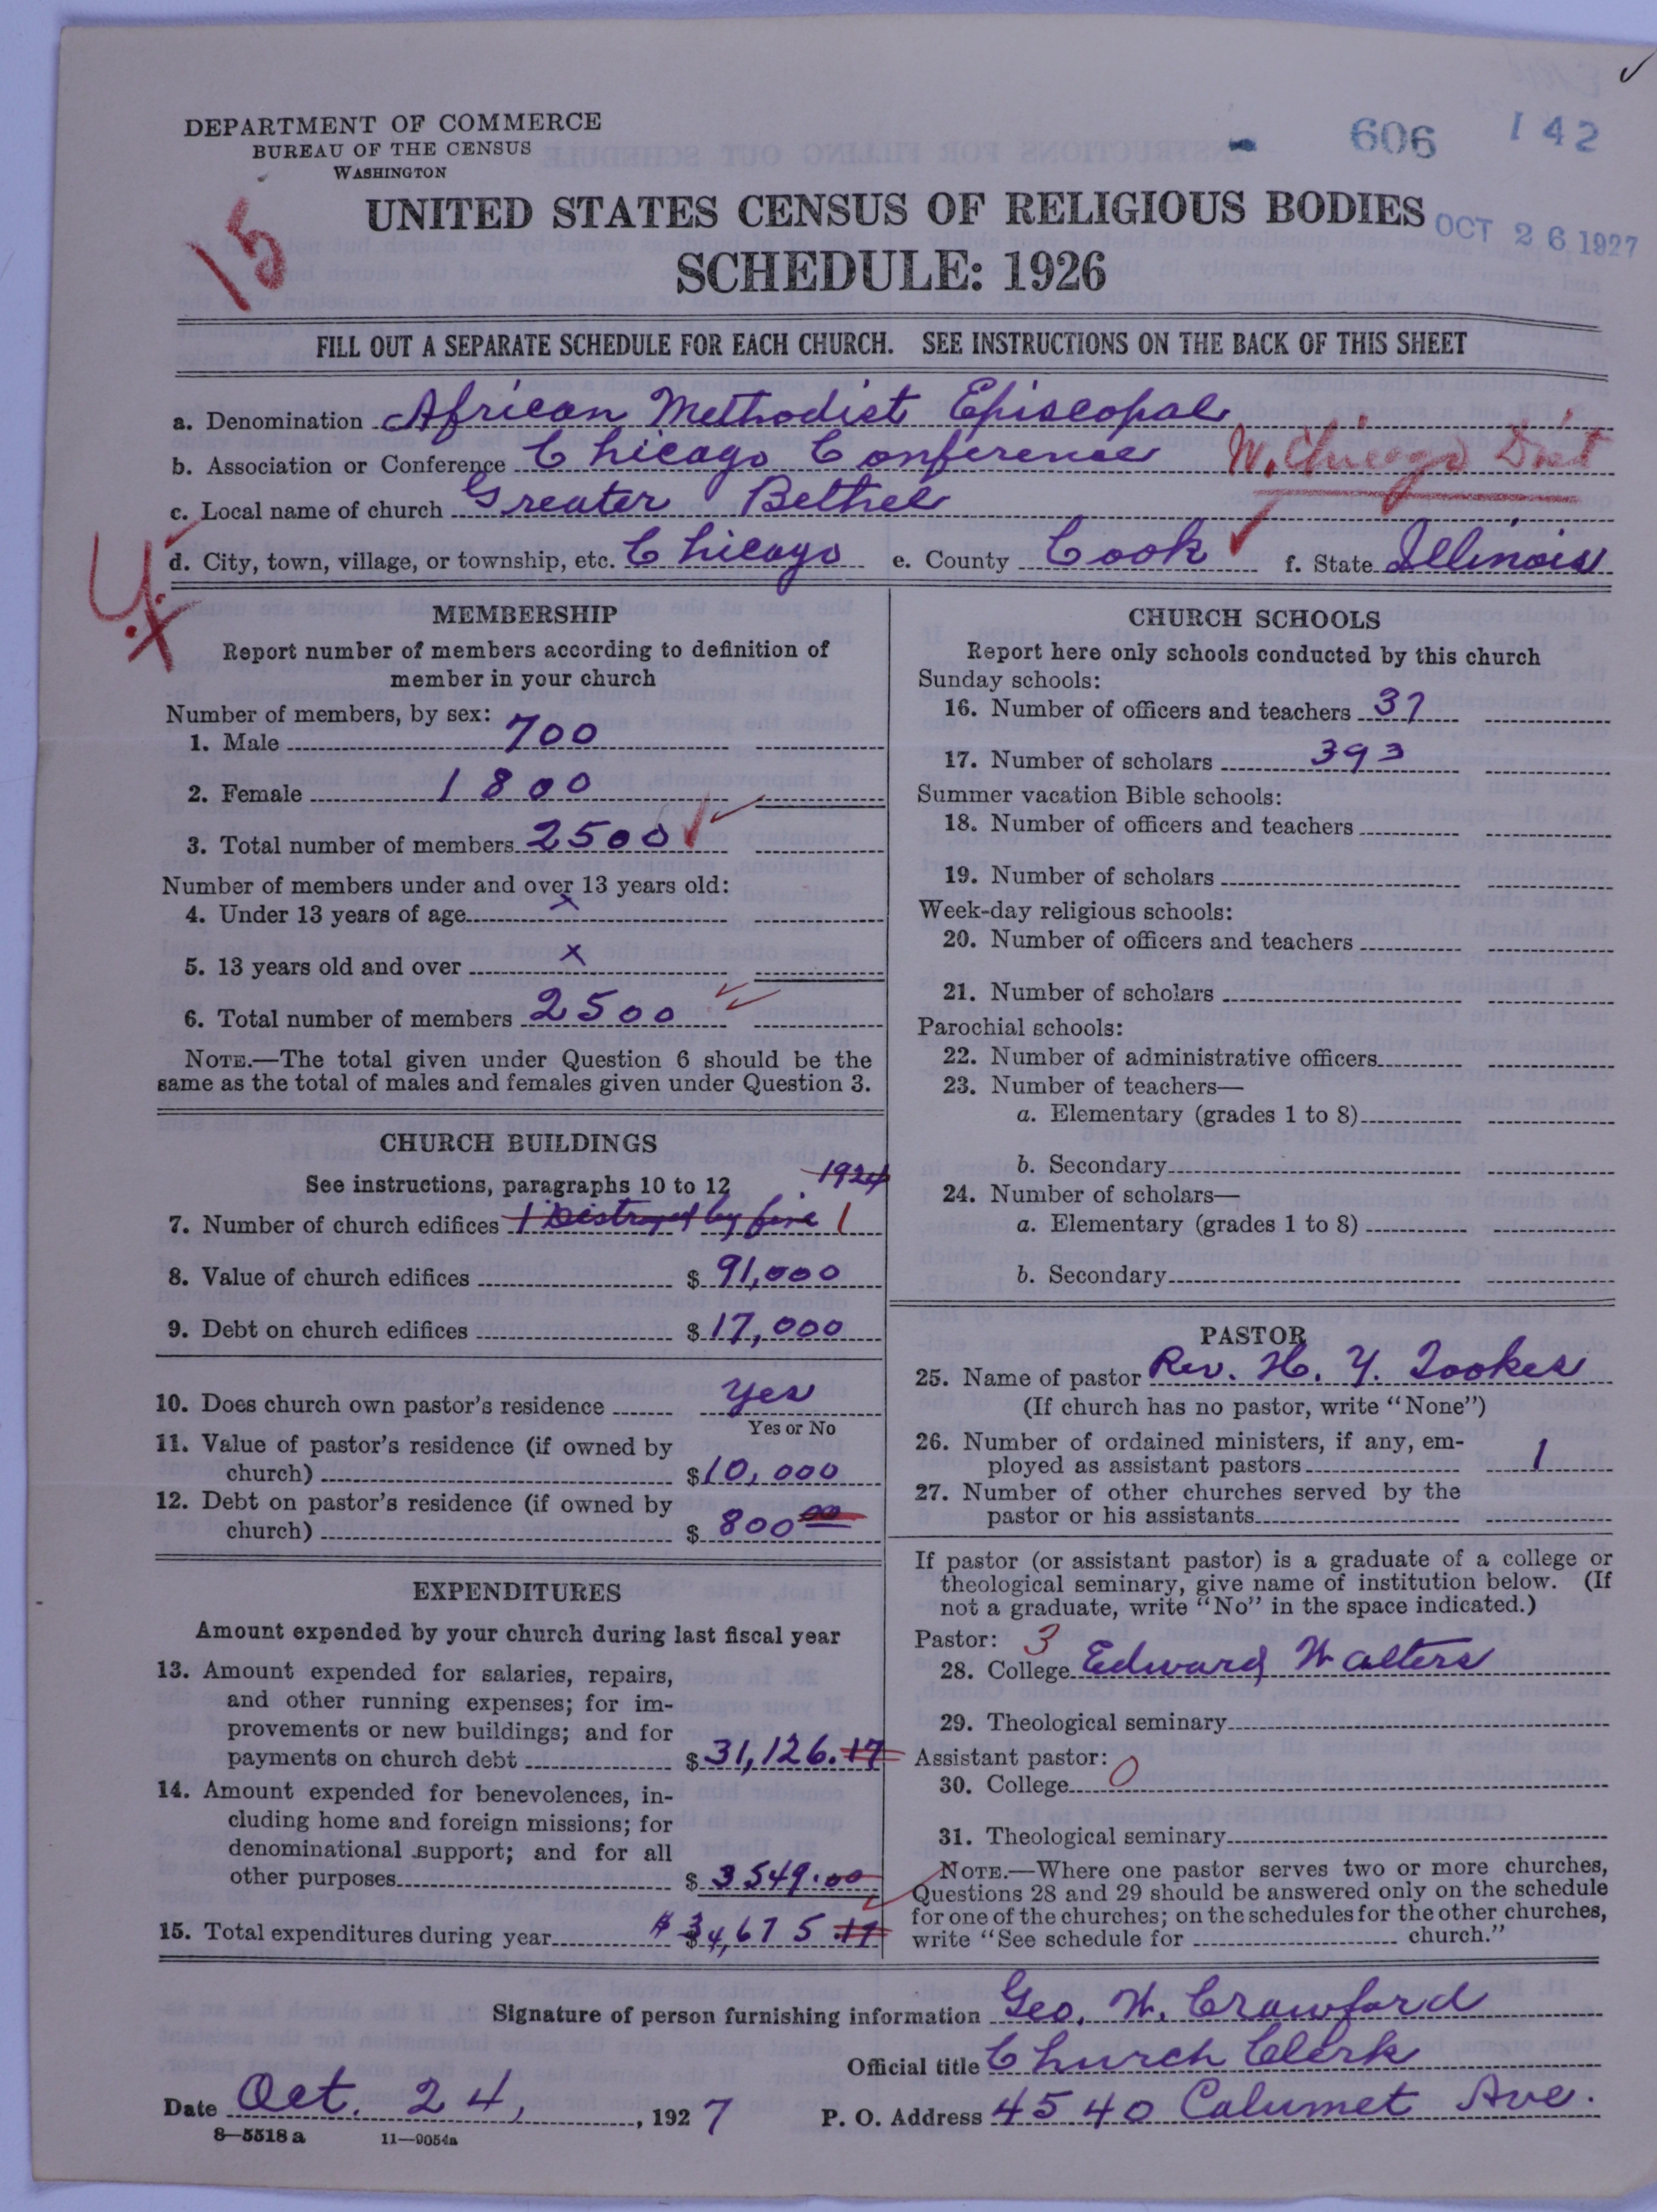 DEPARTMENT OF COMMERCE
BUREAU OF THE CENSUS
WASHINGTON
606 142
15
UNITED STATES CENSUS OF RELIGIOUS BODIES
OCT 26 1927
SCHEDULE: 1926
FILL OUT A SEPARATE SCHEDULE FOR EACH CHURCH. SEE INSTRUCTIONS ON THE BACK OF THIS SHEET
a. Denomination African Methodist Episcopal
b. Association or Conference Chicago Conference W. Chicago Dist
c. Local name of church Greater Bethel
d. City, town, village, or township, etc. Chicago e. County Cook f. State Illinois
MEMBERSHIP
Report number of members according to definition of
member in your church
Number of members, by sex:
1. Male 700
2. Female 1800
3. Total number of members 2500
Number of members under and over 13 years old:
4. Under 13 years of age x
5. 13 years old and over x
6. Total number of members 2500
NOTE.—The total given under Question 6 should be the
same as the total of males and females given under Question 3.
CHURCH BUILDINGS
See instructions, paragraphs 10 to 12 1924
7. Number of church edifices 1 Distroyed by fire 1
8. Value of church edifices $ 91,000
9. Debt on church edifices $ 17,000
10. Does church own pastor's residence Yes
Yes or No
11. Value of pastor's residence (if owned by
church) $ 10,000
12. Debt on pastor's residence (if owned by
church) $ 800 00
EXPENDITURES
Amount expended by your church during last fiscal year
13. Amount expended for salaries, repairs,
and other running expenses; for im-
provements or new buildings; and for
payments on church debt $ 31,126.17
14. Amount expended for benevolences, in-
cluding home and foreign missions; for
denominational support; and for all
other purposes $ 3549.00
15. Total expenditures during year $ 34,675 17
CHURCH SCHOOLS
Report here only schools conducted by this church
Sunday schools:
16. Number of officers and teachers 37
17. Number of scholars 393
Summer vacation Bible schools:
18. Number of officers and teachers
19. Number of scholars
Week-day religious schools:
20. Number of officers and teachers
21. Number of scholars
Parochial schools:
22. Number of administrative officers
23. Number of teachers—
a. Elementary (grades 1 to 8)
b. Secondary
24. Number of scholars—
a. Elementary (grades 1 to 8)
b. Secondary
PASTOR
25. Name of pastor Rev. H. Y. Tookes
(If church has no pastor, write "None")
26. Number of ordained ministers, if any, em-
ployed as assistant pastors 1
27. Number of other churches served by the
pastor or his assistants
If pastor (or assistant pastor) is a graduate of a college or
theological seminary, give name of institution below. (If
not a graduate, write "No" in the space indicated.)
Pastor: 3
28. College Edward Walters
29. Theological seminary
Assistant pastor: 0
30. College
31. Theological seminary
NOTE.—Where one pastor serves two or more churches,
Questions 28 and 29 should be answered only on the schedule
for one of the churches; on the schedules for the other churches,
write "See schedule for church."
Signature of person furnishing information Geo. W. Crawford
Official title Church Clerk
Date Oct. 24, 1927 P. O. Address 4540 Calumet Ave.
8—5518a 11—9054a